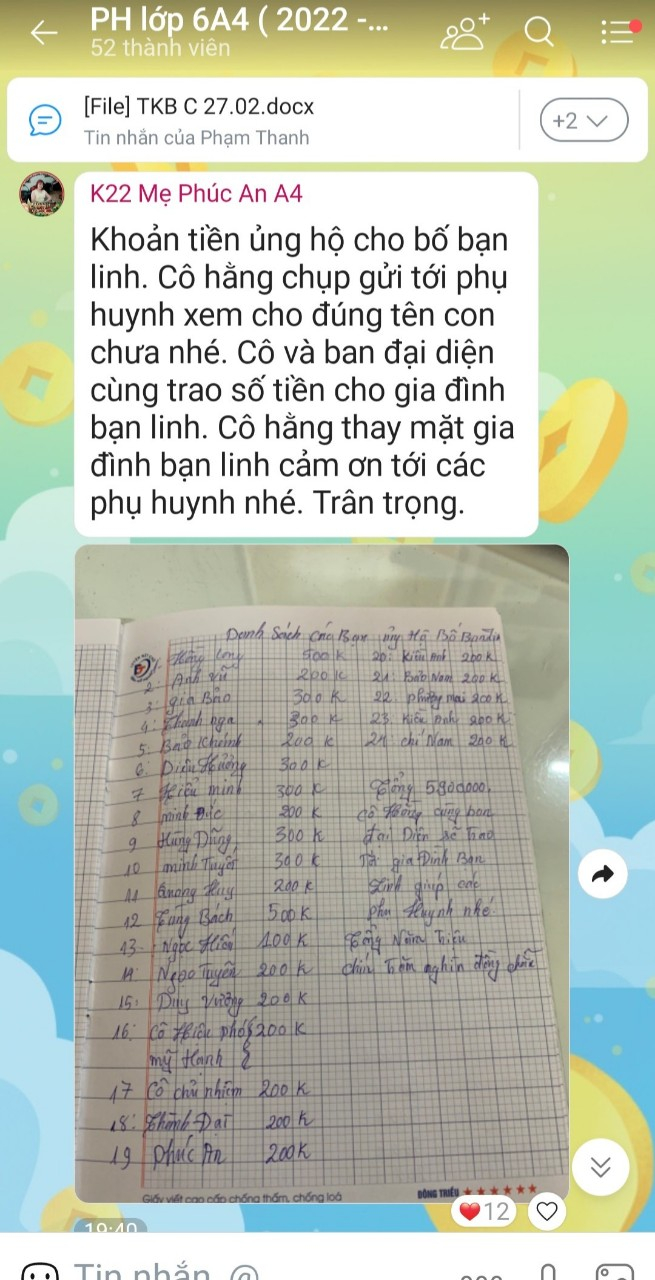 PH lớp 6A4 ( 2022 -...
52 thành viên
[File] TKB C 27.02.docx
Tin nhắn của Phạm Thanh
+2
K22 Mẹ Phúc An A4
Khoản tiền ủng hộ cho bố bạn
linh. Cô hằng chụp gửi tới phụ
huynh xem cho đúng tên con
chưa nhé. Cô và ban đại diện
cùng trao số tiền cho gia đình
bạn linh. Cô hằng thay mặt gia
đình bạn linh cảm ơn tới các
phụ huynh nhé. Trân trọng.
Danh Sách Các Bạn ủng Hộ Bố Bạn
1. Hồng Long 500K
2. Anh Vũ 200K
3. gia Bảo 300K
4. Thanh nga 300K
5. Bảo Khánh 200K
6. Diệu Hương 300K
7 Hiểu minh 300K
8 minh Đức 200K
9 Hùng Dũng 300K
10 minh Tuyết 300K
11 Quang Huy 200K
12 Tùng Bách 500K
13. Ngọc Hiếu 100K
14 Ngọc Tuyền 200K
15: Duy Vương 200K
16: Cô Hiệu phó 200K
mỹ Hạnh
17 Cô chủ nhiệm 200K
18: Thành Đạt 200K
19 Phúc An 200K
20: Kiều Anh 200K
21: Bảo Nam 200K
22: phương mai 200K
23. Kiều Anh 200K
24: chí Nam 200K
Tổng 5900000.
Cô Hằng cùng ban
đại Diện sẽ Trao
Tới gia Đình Bạn
Linh giúp các
phụ Huynh nhé.
Tổng Năm Triệu
chín Trăm nghìn đồng chẵn
Giấy viết cao cấp chống thấm, chống loá
ĐÔNG TRIỀU
12
19:40
Tin nhắn